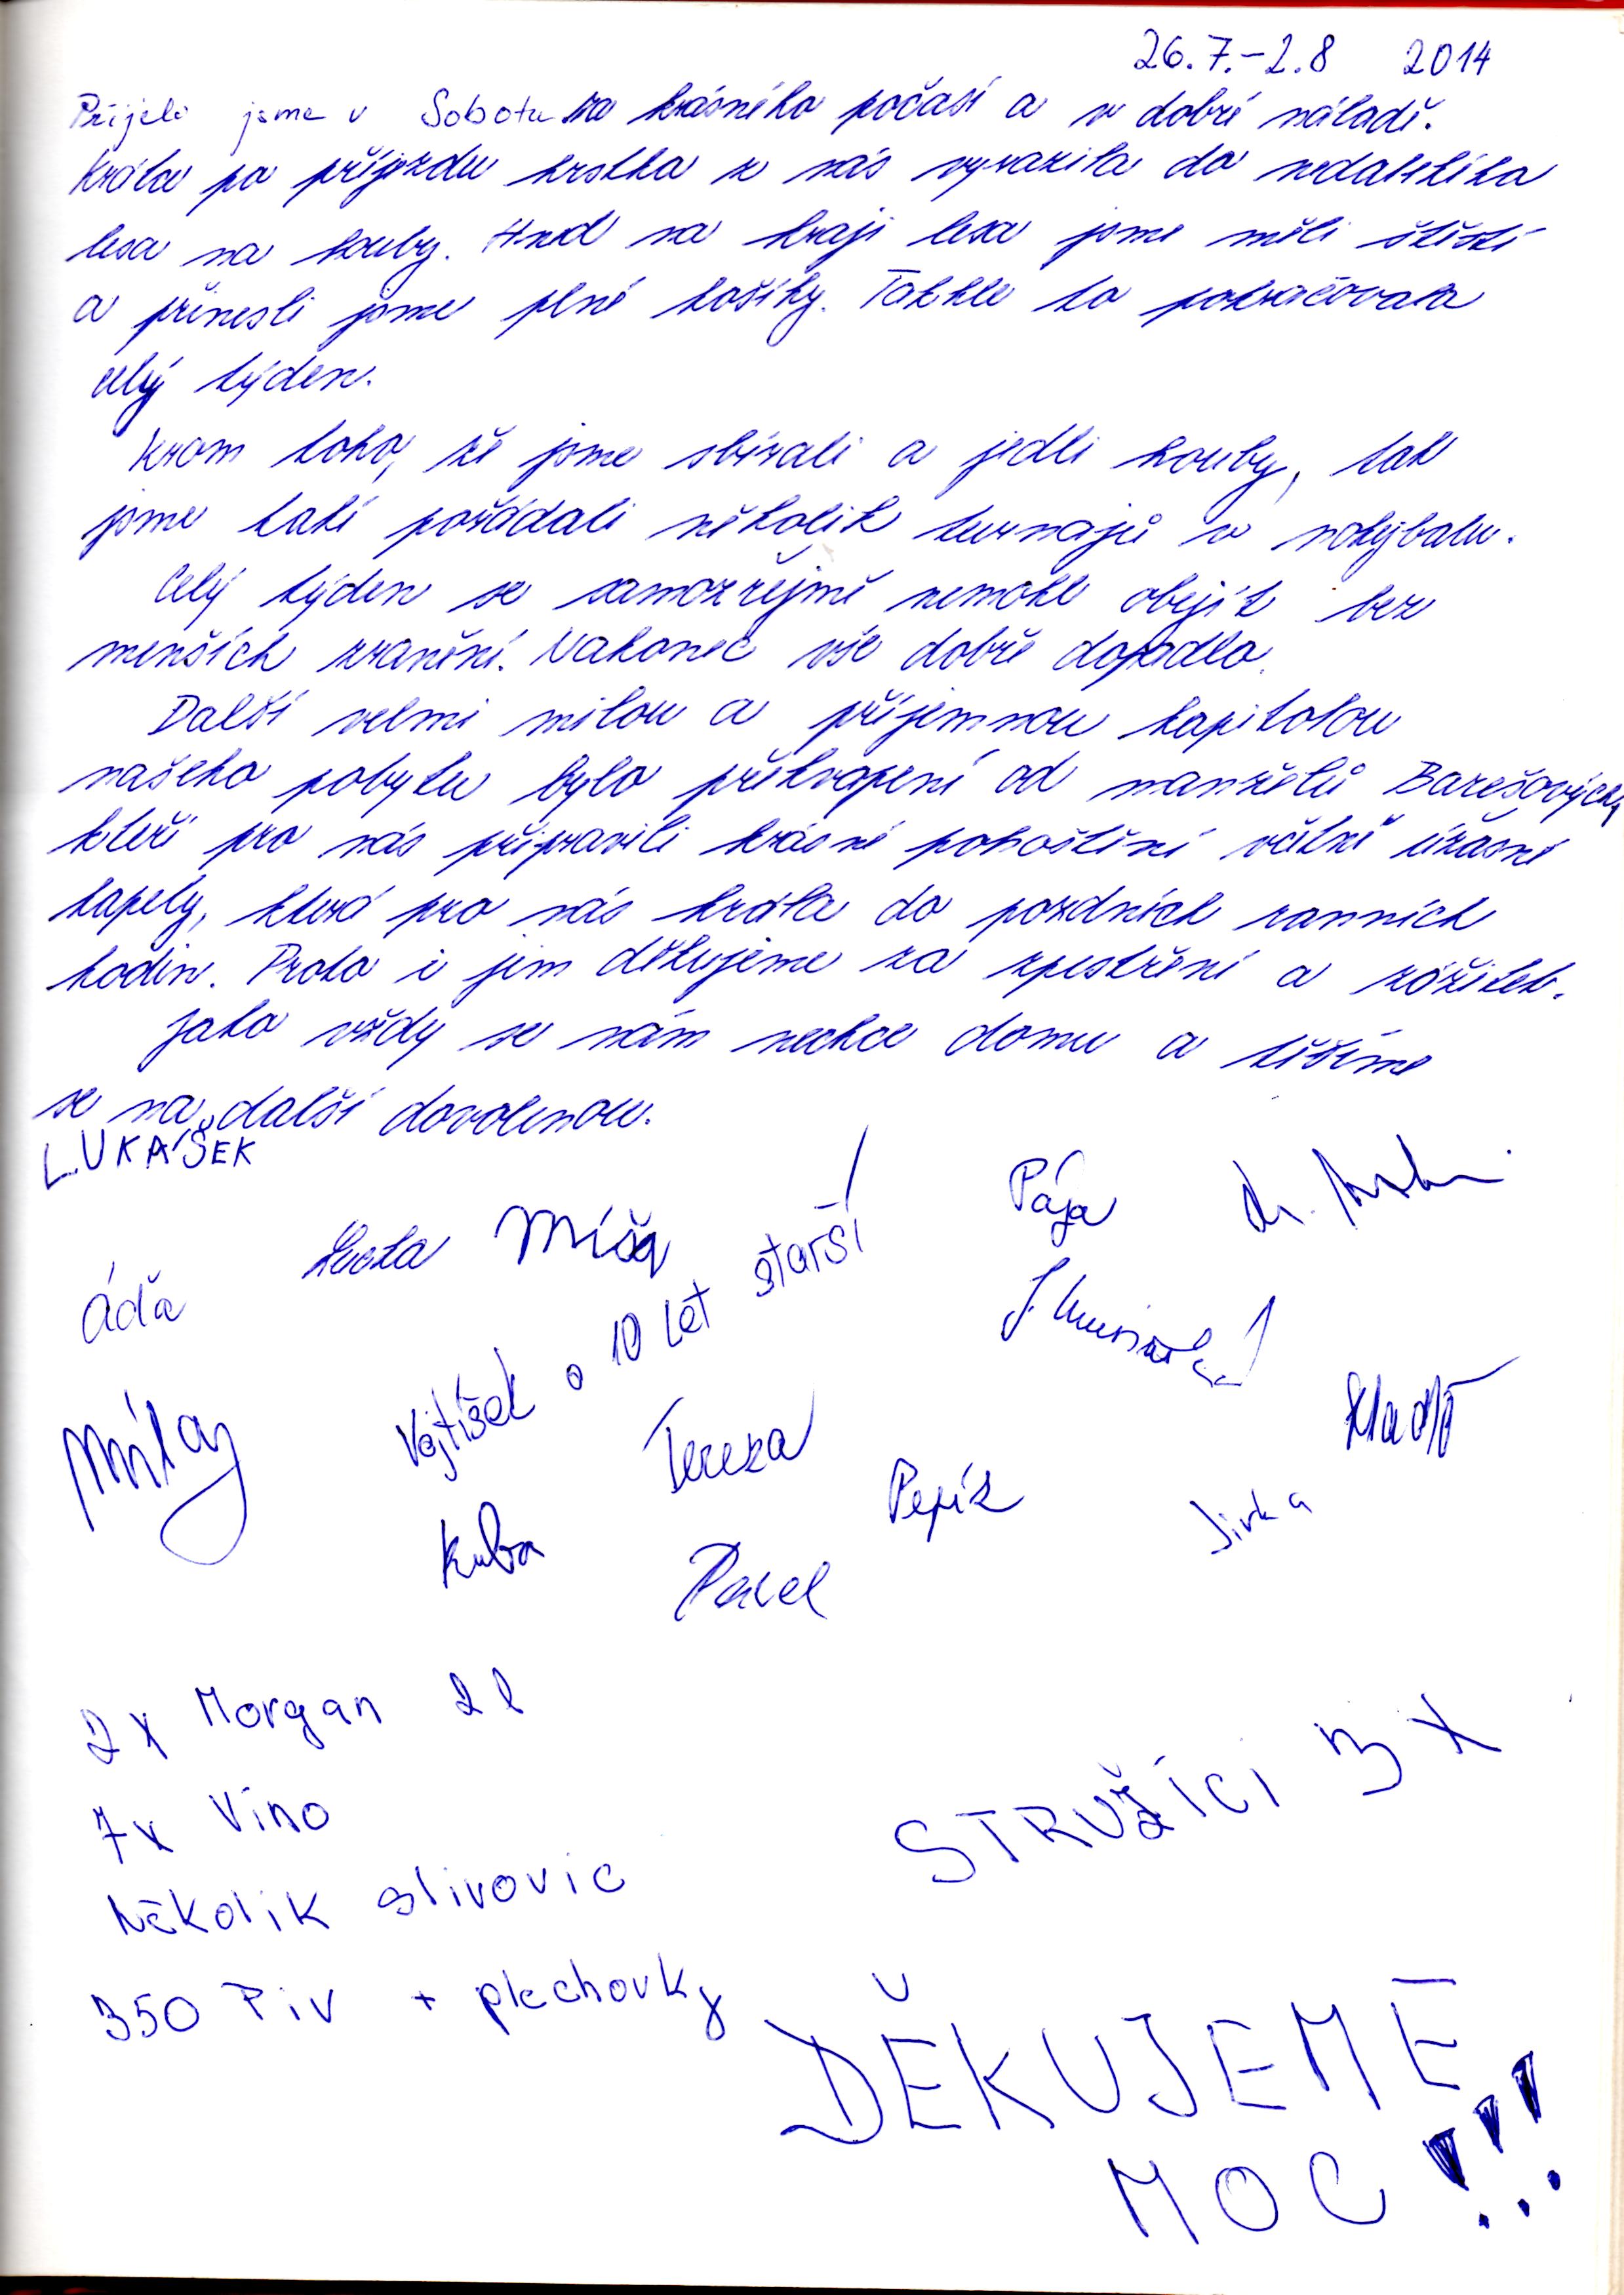 26.7.-2.8 2014
Přijeli jsme v Sobotu za krásného počasí a v dobré náladě.
Krátce po příjezdu hrstka z nás vyrazila do nedalekého
lesa na houby. Hned na kraji lesa jsme měli štěstí
a přinesli jsme plné košíky. Takhle to pokračovalo
celý týden.
Krom toho, že jsme sbírali a jedli houby, tak
jsme také pořádali několik turnajů v nohejbalu.
Celý týden se samozřejmě nemohl obejít bez
menších zranění. Nakonec vše dobře dopadlo.
Další velmi milou a příjemnou kapitolou
našeho pobytu bylo překvapení od manželů Barešových,
kteří pro nás připravili krásné pohoštění včetně úžasné
kapely, která pro nás hrála do pozdních ranních
hodin. Proto i jim děkujeme za zpestření a zážitek.
Jako vždy se nám nechce domu a těšíme
se na další dovolenou.
LUKÁŠEK
Áďa
Míša
Vojtíšek o 10 let starší!
Pája
Míla
Tereza
Kuba
Pavel
Pepík
Jirka
2x Morgan 2l
7x Víno
Několik slivovic
350 Piv + plechovky
STRUŽÍCI 3X
DĚKUJEME
MOC!!!